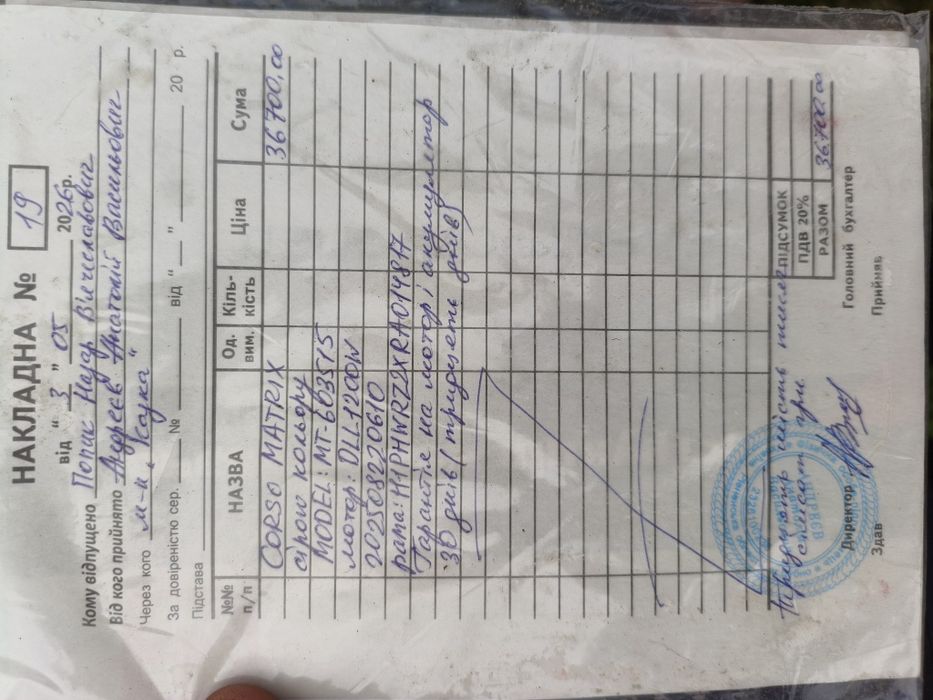 НАКЛАДНА № 19
від " 3 " 05 2026 р.
Кому відпущено Попик Назар Вʼячеславович
Від кого прийнято Андреєв Анатолій Васильович
Через кого м-н
За довіреністю сер. № від " " 20 р.
Підстава
№№ п/п НАЗВА Од. вим. Кіль-кість Ціна Сума
CORSO MATRIX 36700,00
сірого кольору
MODEL: MT-603515
мотор: DLL1200W
202508220610
рама: H1PHWRZ2XRA014817
Гарантія на мотор і акумулятор
30 днів (тридцять днів)
ПІДСУМОК
ПДВ 20%
РАЗОМ 36700,00
Тридцять шість тисяч
сімсот грн
Директор Головний бухгалтер
Здав Прийняв